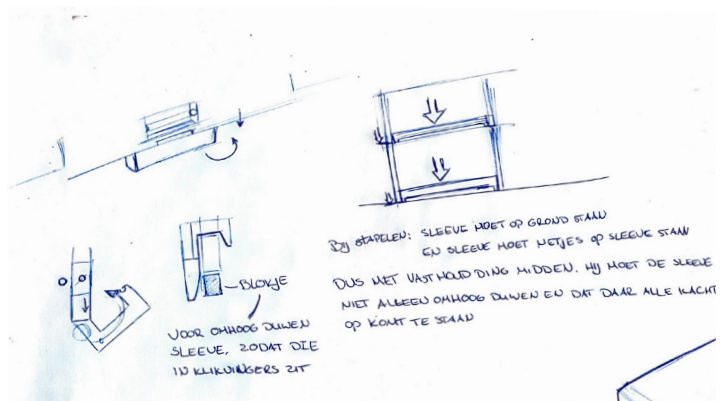 BLOKJE
VOOR OMHOOG DUWEN
SLEEVE, ZODAT DIE
IN KLIKVINGERS ZIT
BIJ STAPELEN: SLEEVE MOET OP GROND STAAN
EN SLEEVE MOET NETJES OP SLEEVE STAAN
DUS MET VASTHOUD DING MIDDEN. HIJ MOET DE SLEEVE
NIET ALLEEN OMHOOG DUWEN EN DAT DAAR ALLE KRACHT
OP KOMT TE STAAN